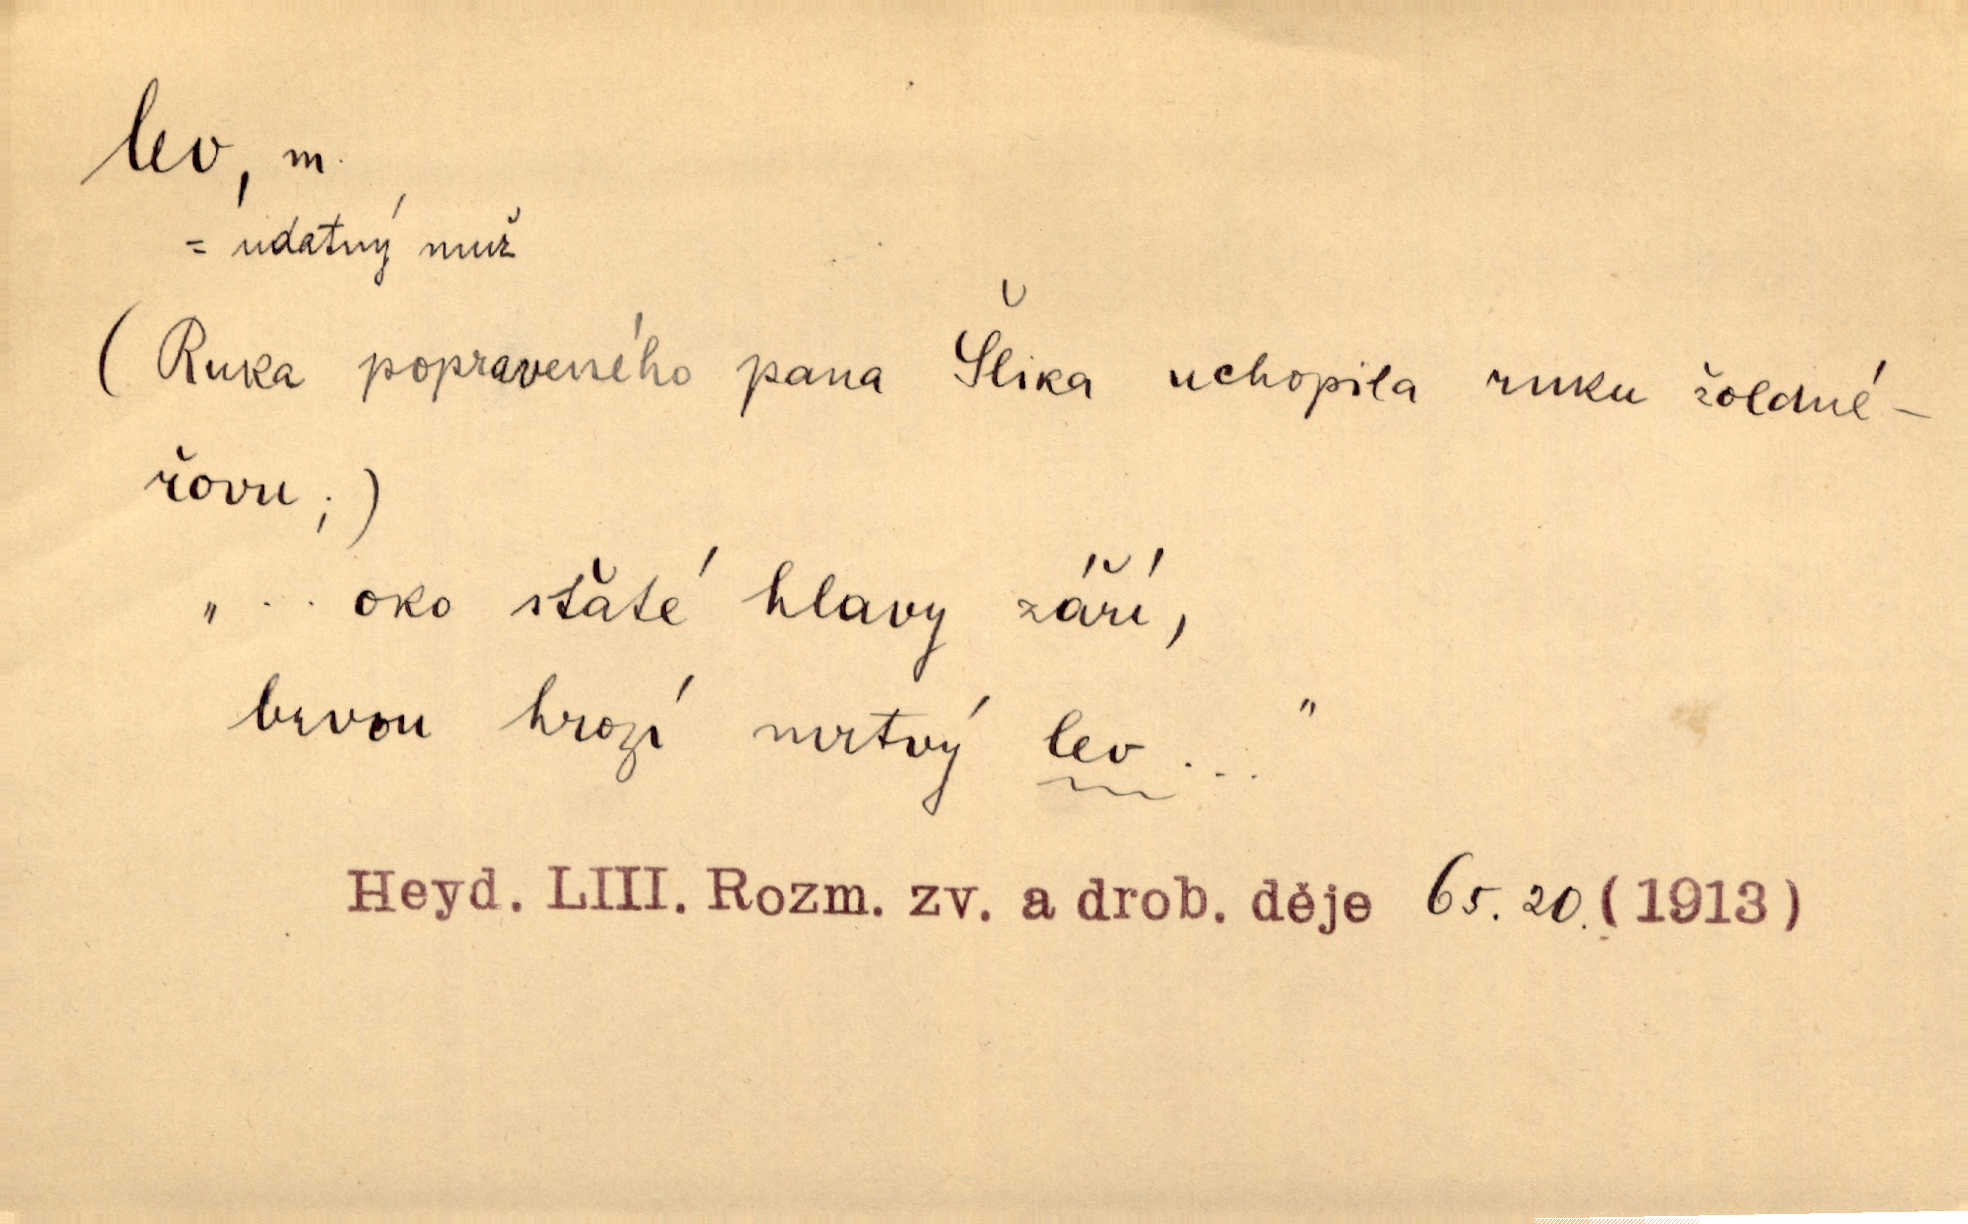 lev, m.
= údatný muž
(Ruka popraveného pana Šlika uchopila ruku žoldné-
řovu;)
„... oko sťaté hlavy září,
brvou hrozí mrtvý lev ..."
Heyd. LIII. Rozm. zv. a drob. děje 65. 20. (1913)